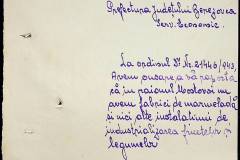 Prefectura Județului Berezovca
Serv. Economic.
La ordinul Dv. Nr. 21446/943,
Avem onoare a vă raporta
că în raionul Mostovoi nu
avem fabrici de marmeladă
și nici alte instalațiuni de
industrializarea fructelor și
legumelor